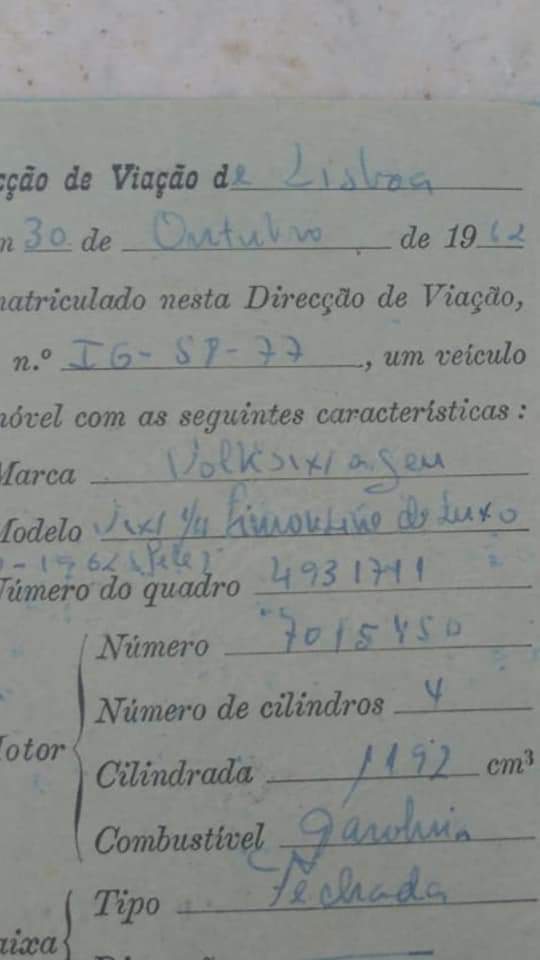 cção de Viação de Lisboa
m 30 de Outubro de 1962
matriculado nesta Direcção de Viação,
n.º IG-SP-77, um veículo
móvel com as seguintes características:
Marca Volkswagen
Modelo Limousine de Luxo
-1962
Número do quadro 4931711
Número 7015450
Número de cilindros 4
Motor
Cilindrada 1192 cm³
Combustível gasolina
Tipo Fechada
aixa